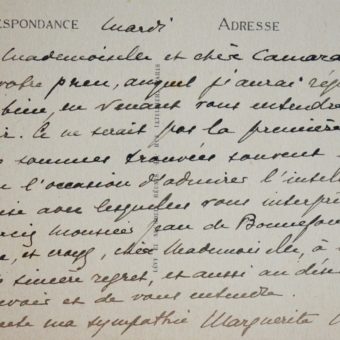 ESPONDANCE Mardi ADRESSE
Mademoiselle et chère Camara
votre pneu, auquel j'aurai rép
bien, en venant vous entendre
ir. Ce ne serait pas la première
s sommes trouvées souvent
l'occasion d'admirer l'intel
ise avec lesquelles vous interpr
monsieur Jean de Bonnefon
, et croyez, chère Mademoiselle, à
sincère regret, et aussi au dés
voir et de vous entendre.
ma sympathie Marguerite